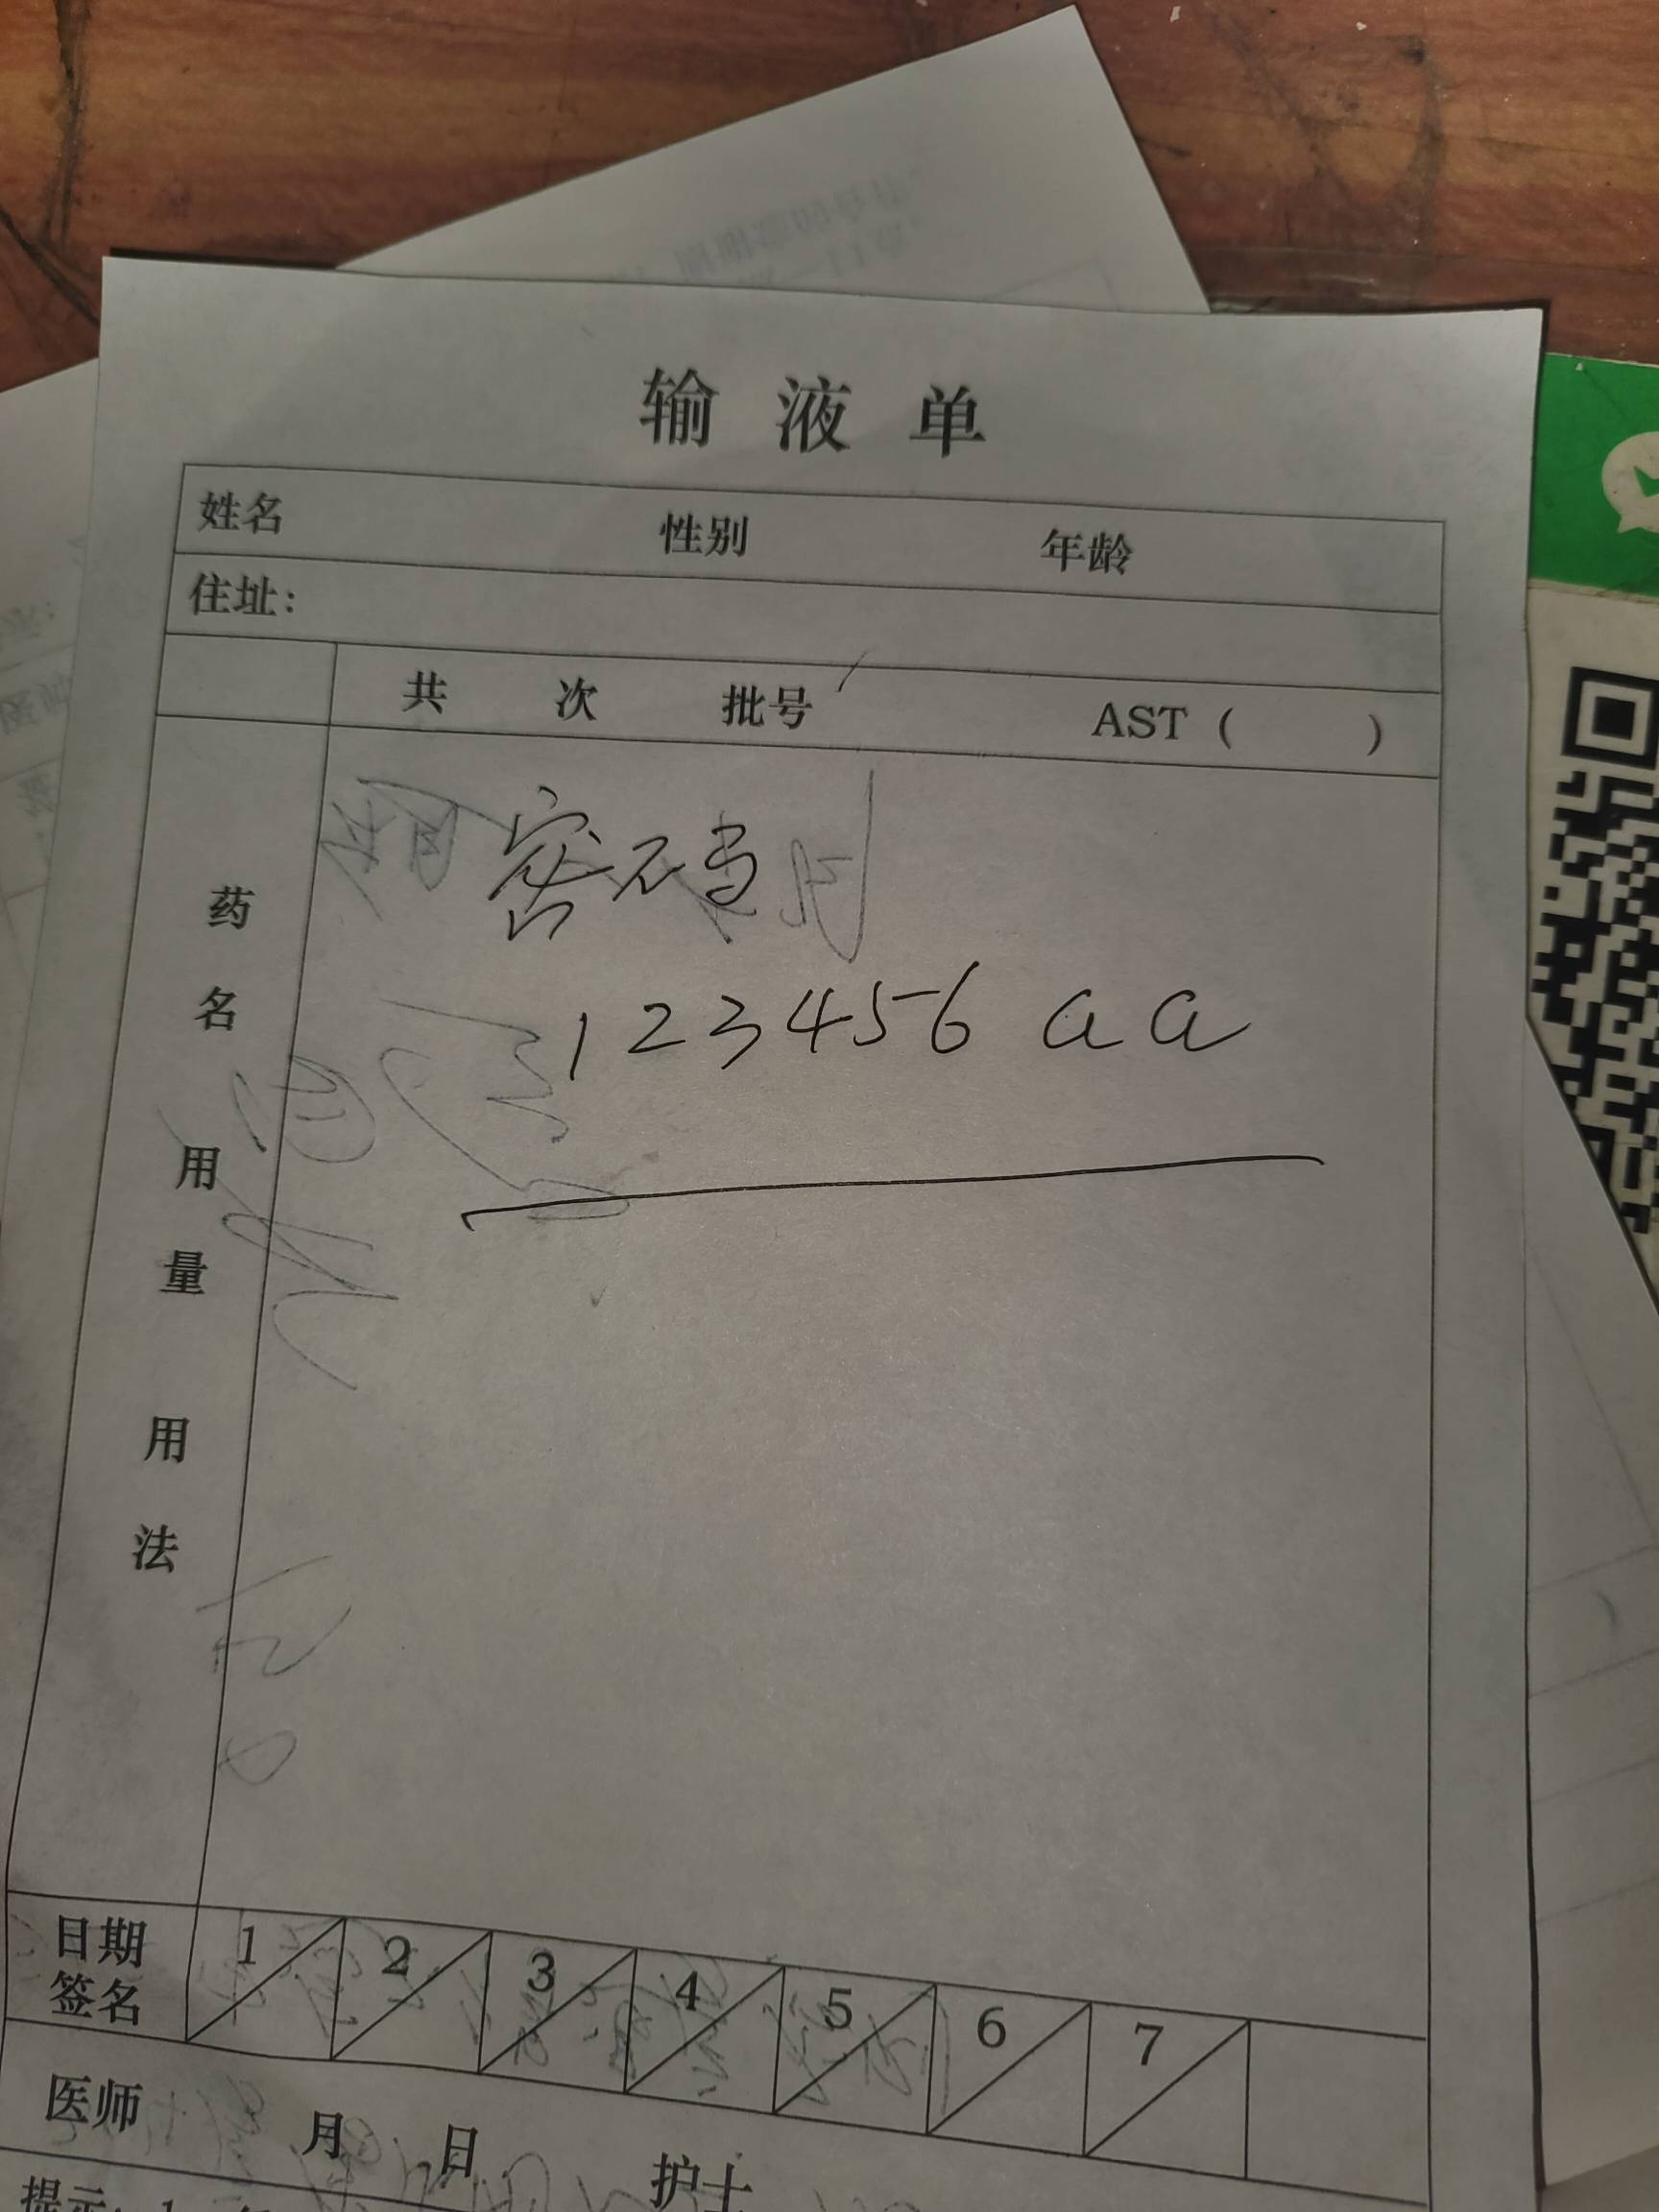 输液单
姓名 性别 年龄
住址：
共 次 批号 AST（ ）
药名 用量 用法
密码
123456 aa
日期
签名
1 2 3 4 5 6 7
医师 月 日 护士
提示：1